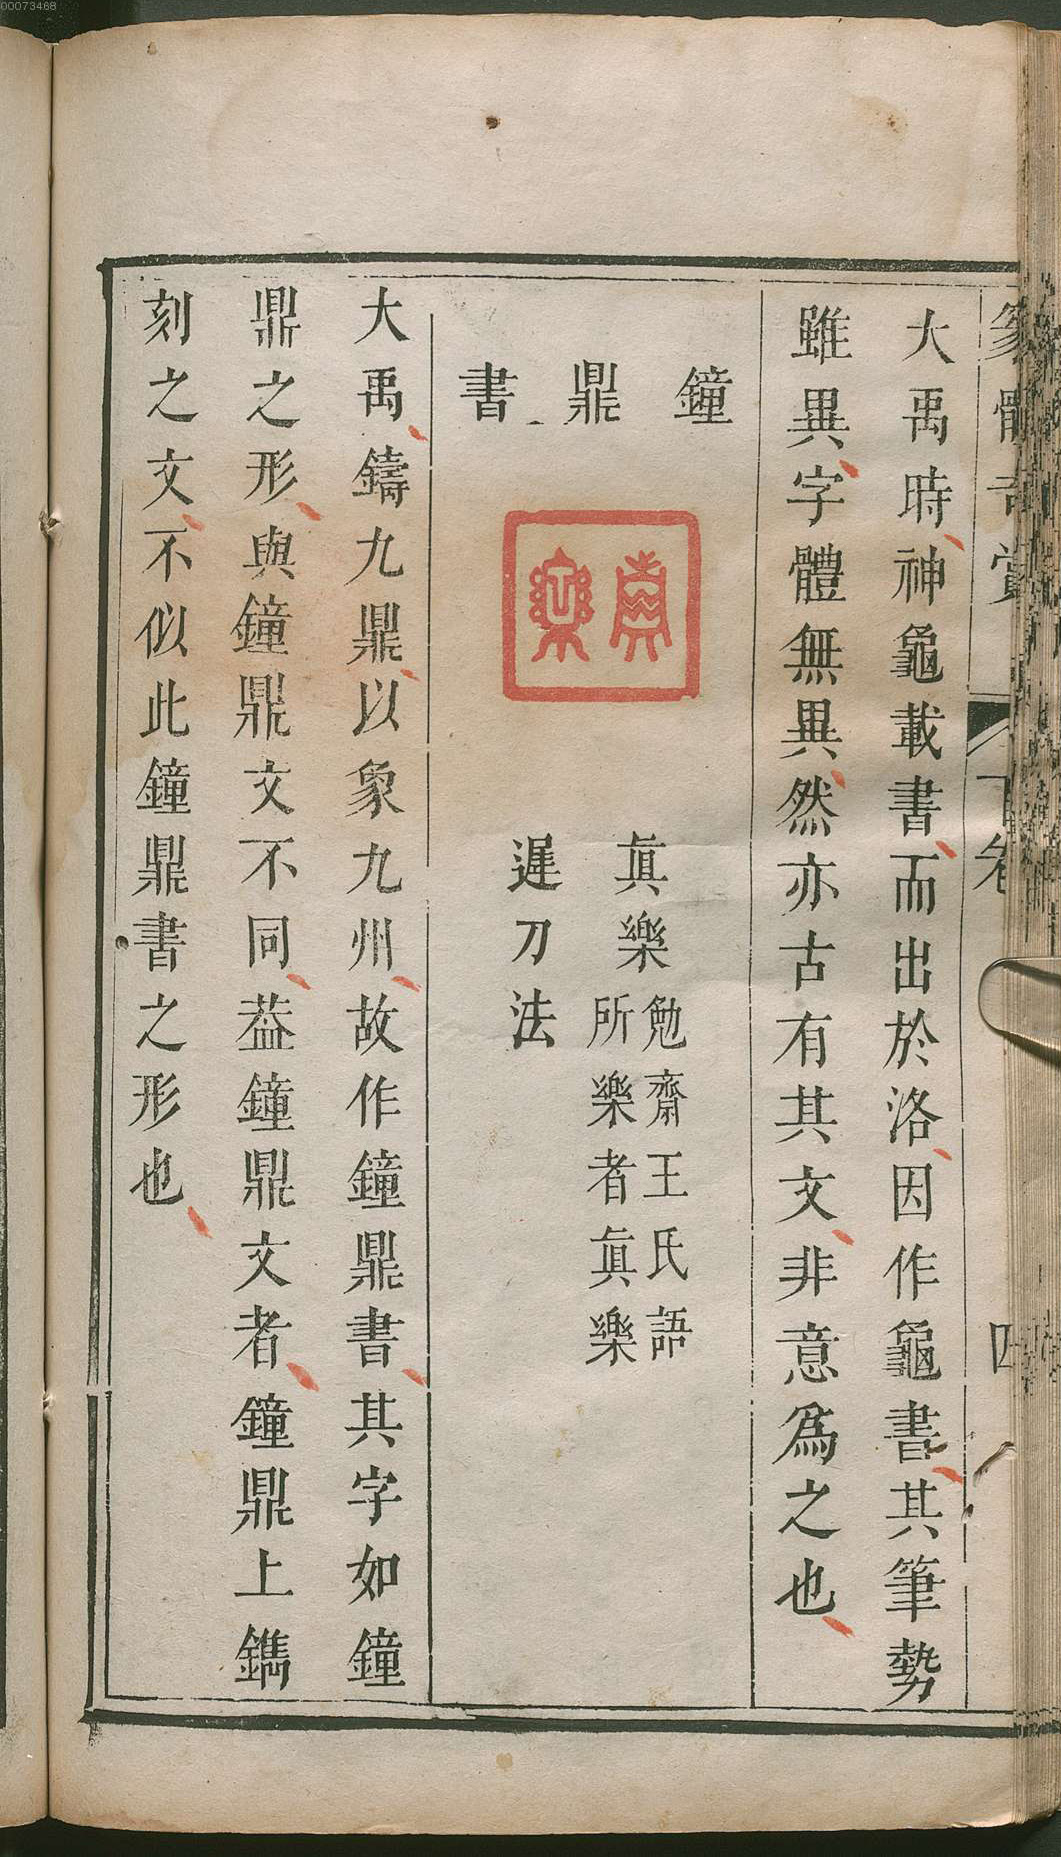 00073468
大禹時神龜載書而出於洛因作龜書其筆勢
雖異字體無異然亦古有其文非意爲之也
鐘鼎書
眞樂
眞樂
勉齋王氏語
所樂者眞樂
遲刀法
大禹鑄九鼎以象九州故作鐘鼎書其字如鐘
鼎之形與鐘鼎文不同葢鐘鼎文者鐘鼎上鐫
刻之文不似此鐘鼎書之形也